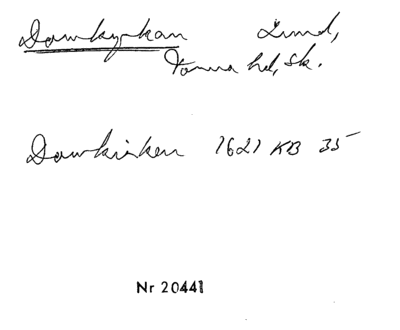 Domkyrkan Lund,
Torna hd, Sk.
Domkirken 1621 KB 35
Nr 20441